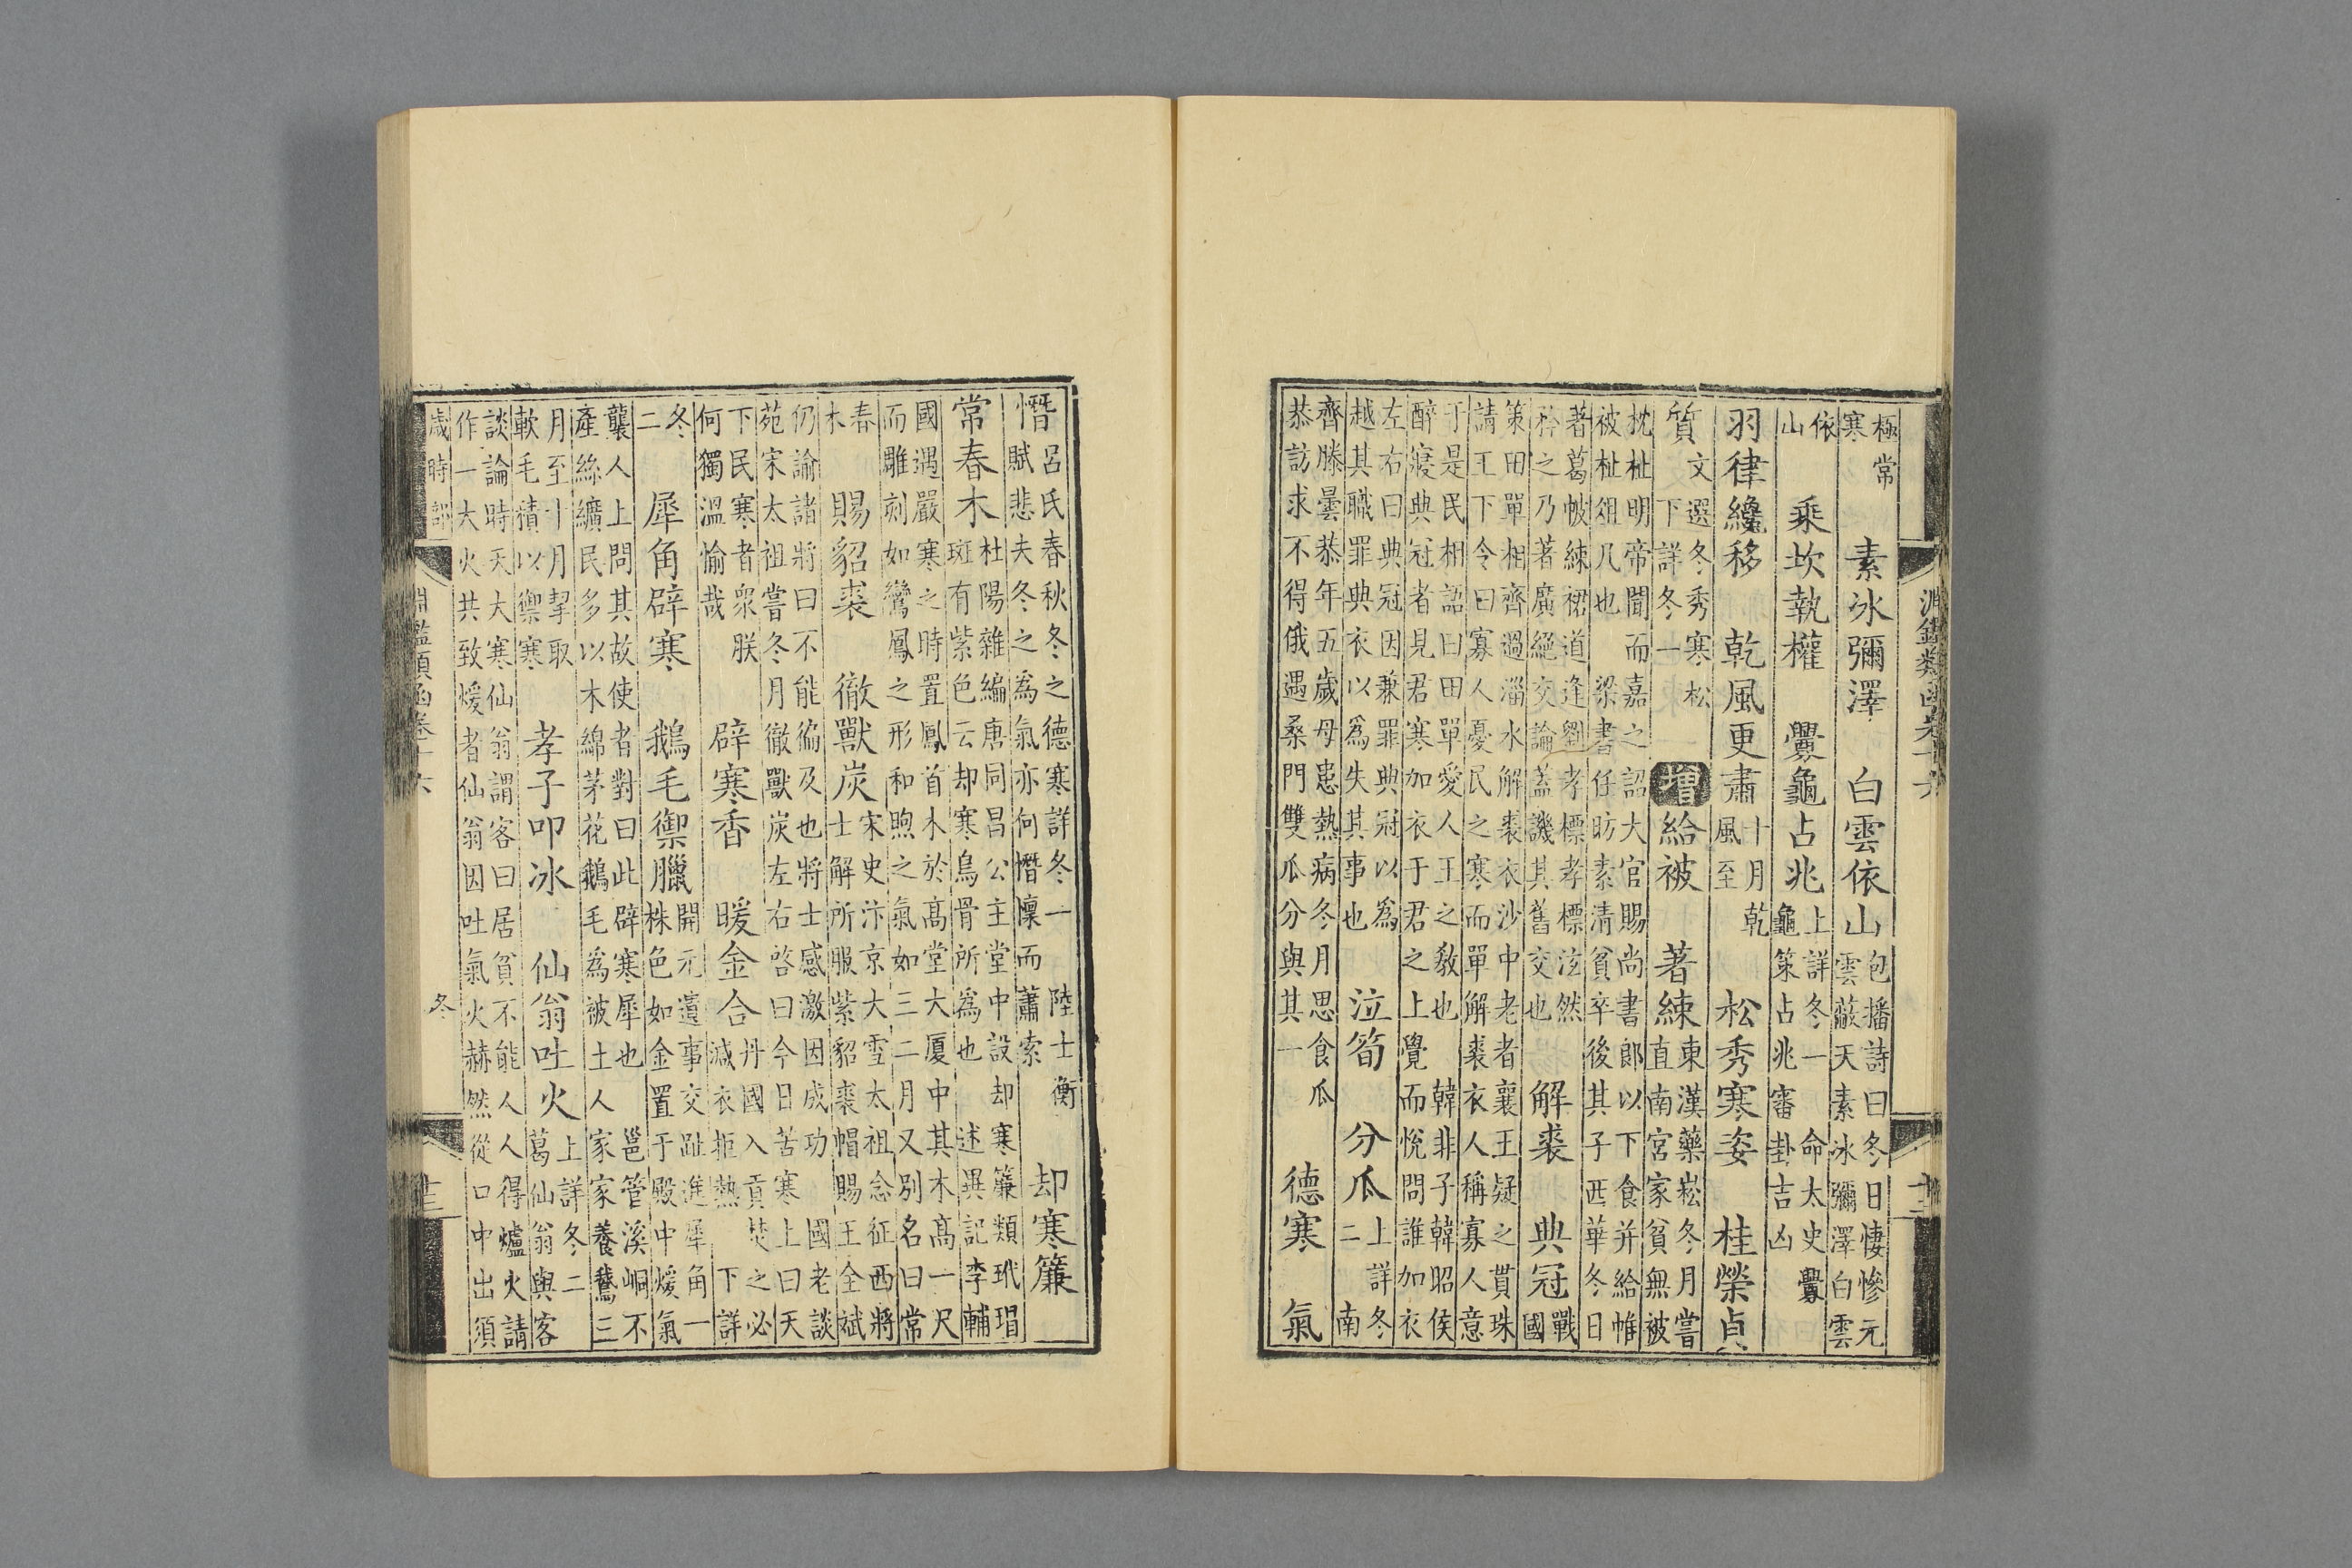 淵鑑類函卷十六
極常
寒
素冰彌澤 白雲依山
包播詩曰冬日悽慘元
雲蔽天素冰彌澤白雲
依
山
乘坎執權 釁龜占兆
上詳冬一 命太史釁
龜策占兆審卦吉凶
羽律纔移 乾風更肅
十月乾
風至
松秀寒姿 桂榮貞
質
文選冬秀寒松
下詳冬一
增 給被 著練
東漢藥崧冬月嘗
直南宮家貧無被
枕杫明帝聞而嘉之詔大官賜尚書郎以下食并給帷
被杫俎几也 梁書任昉素清貧卒後其子西華冬日
著葛帔練裙道逢劉孝標孝標泫然
矜之乃著廣絕交論蓋譏其舊交也
解裘 典冠
戰
國
策田單相齊過淄水解裘衣沙中老者襄王疑之貫珠
請王下令曰寡人憂民之寒而單解裘衣人稱寡人意
于是民相語曰田單愛人王之教也 韓非子韓昭侯
醉寢典冠者見君寒加衣于君之上覺而悅問誰加衣
左右曰典冠因兼罪典冠以為
越其職罪典衣以為失其事也
泣筍 分瓜
上詳冬
二 南
齊滕曇恭年五歲母患熱病冬月思食瓜
恭訪求不得俄遇桑門雙瓜分與其一
德寒 氣
憯
呂氏春秋冬之德寒詳冬一 陸士衡
賦悲夫冬之為氣亦何憯懍而蕭索
却寒簾
常春木
杜陽雜編唐同昌公主堂中設却寒簾類玳瑁
斑有紫色云却寒鳥骨所為也 述異記李輔
國遇嚴寒之時置鳳首木於高堂大厦中其木高一尺
而雕刻如鸞鳳之形和煦之氣如三二月又別名曰常
春
木
賜貂裘 徹獸炭
宋史汴京大雪太祖念征西將
士解所服紫貂裘帽賜王全斌
仍諭諸將曰不能徧及也將士感激因成功 國老談
苑宋太祖嘗冬月徹獸炭左右啓曰今日苦寒上曰天
下民寒者衆朕
何獨溫愉哉
辟寒香 暖金合
丹國入貢焚之必
減衣拒熱 下詳
冬
二
犀角辟寒 鵝毛禦臘
開元遺事交趾進犀角一
株色如金置于殿中煖氣
襲人上問其故使者對曰此辟寒犀也 邕管溪峒不
產絲纊民多以木綿茅花鵝毛為被土人家家養鵞三
月至十月挈取
軟毛積以禦寒
孝子叩冰 仙翁吐火
上詳冬二
葛仙翁與客
談論時天大寒仙翁謂客曰居貧不能人人得爐火請
作一大火共致煖者仙翁因吐氣火赫然從口中出須
歲時部 淵鑑類函卷十六 冬